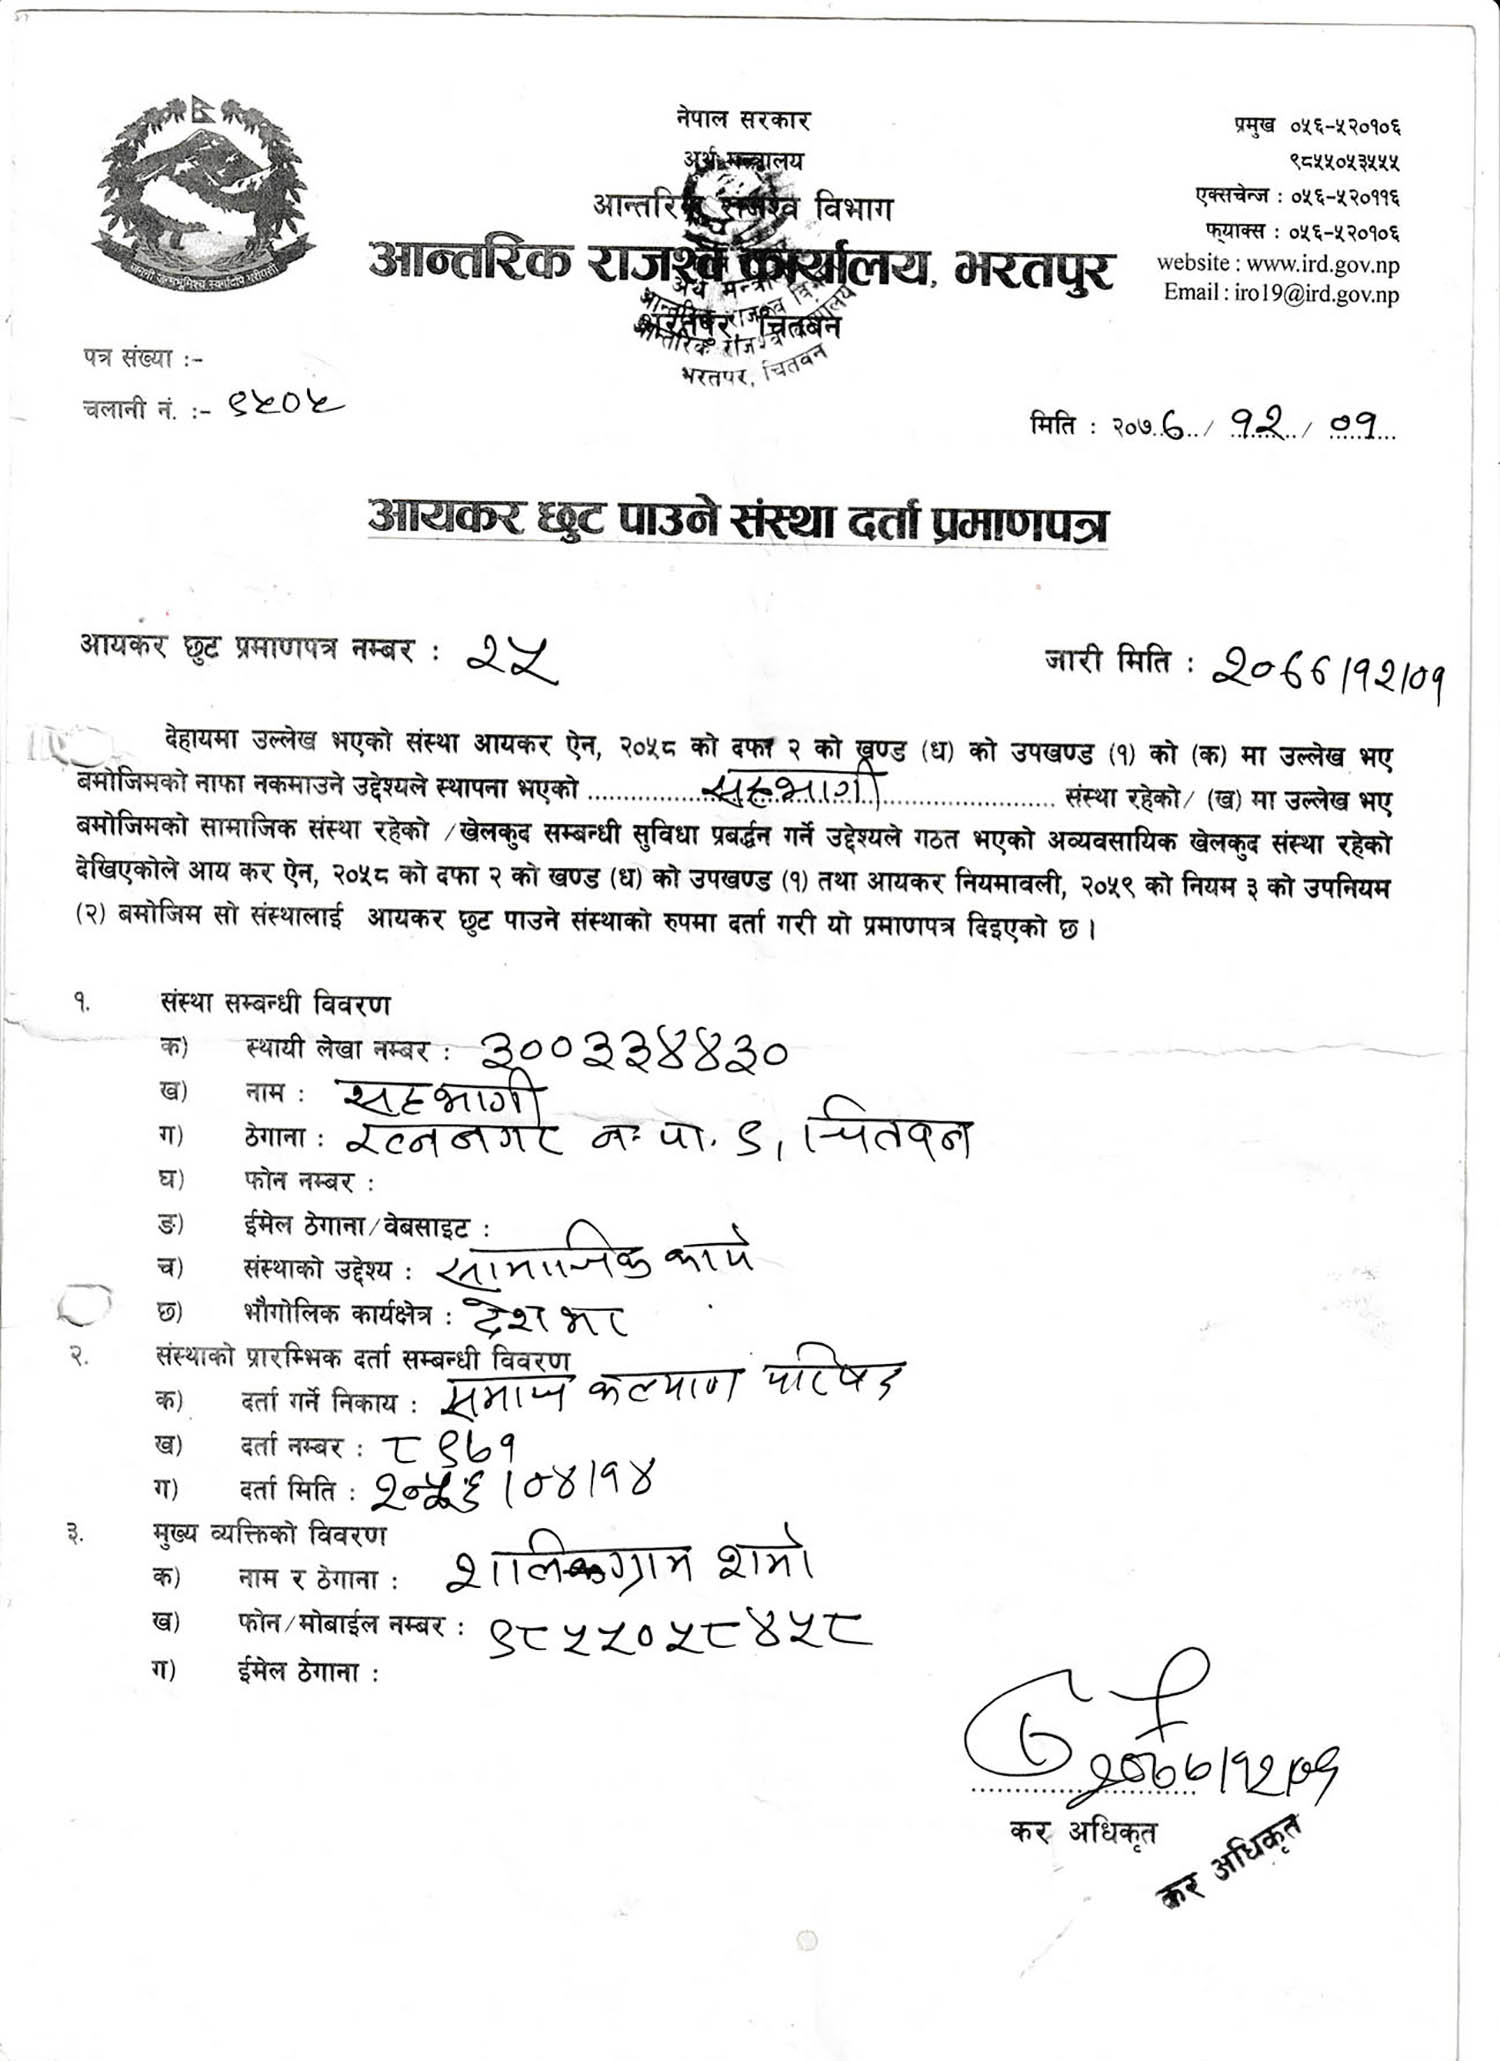 नेपाल सरकार
अर्थ मन्त्रालय
आन्तरिक राजश्व विभाग
आन्तरिक राजश्व कार्यालय, भरतपुर
भरतपुर, चितवन
प्रमुख ०५६-५२०१०६
९८५५०५३५५५
एक्सचेन्ज : ०५६-५२०११६
फ्याक्स : ०५६-५२०१०६
website : www.ird.gov.np
Email : iro19@ird.gov.np
अर्थ मन्त्रा
आन्तरिक राजश्व वि
आन्तरिक राजश्व कार्यालय
भरतपुर, चितवन
पत्र संख्या :-
चलानी नं. :- ९५०५
मिति : २०७६/१२/०१
आयकर छुट पाउने संस्था दर्ता प्रमाणपत्र
आयकर छुट प्रमाणपत्र नम्बर : २५
जारी मिति : २०७६/१२/०१
देहायमा उल्लेख भएको संस्था आयकर ऐन, २०५८ को दफा २ को खण्ड (ध) को उपखण्ड (१) को (क) मा उल्लेख भए
बमोजिमको नाफा नकमाउने उद्देश्यले स्थापना भएको सहभागी संस्था रहेको/ (ख) मा उल्लेख भए
बमोजिमको सामाजिक संस्था रहेको /खेलकुद सम्बन्धी सुविधा प्रबर्द्धन गर्ने उद्देश्यले गठत भएको अव्यवसायिक खेलकुद संस्था रहेको
देखिएकोले आय कर ऐन, २०५८ को दफा २ को खण्ड (ध) को उपखण्ड (१) तथा आयकर नियमावली, २०५९ को नियम ३ को उपनियम
(२) बमोजिम सो संस्थालाई आयकर छुट पाउने संस्थाको रुपमा दर्ता गरी यो प्रमाणपत्र दिइएको छ ।
१. संस्था सम्बन्धी विवरण
क) स्थायी लेखा नम्बर : ३००३३४४३०
ख) नाम : सहभागी
ग) ठेगाना : रत्ननगर न.पा. ९, चितवन
घ) फोन नम्बर :
ङ) ईमेल ठेगाना/वेबसाइट :
च) संस्थाको उद्देश्य : सामाजिक कार्य
छ) भौगोलिक कार्यक्षेत्र : देशभर
२. संस्थाको प्रारम्भिक दर्ता सम्बन्धी विवरण
क) दर्ता गर्ने निकाय : समाज कल्याण परिषद
ख) दर्ता नम्बर : ८९७१
ग) दर्ता मिति : २०५६/०४/१४
३. मुख्य व्यक्तिको विवरण
क) नाम र ठेगाना : शालिकग्राम शर्मा
ख) फोन/मोबाईल नम्बर : ९८५५०५८४५८
ग) ईमेल ठेगाना :
२०७६/१२/०१
कर अधिकृत
कर अधिकृत